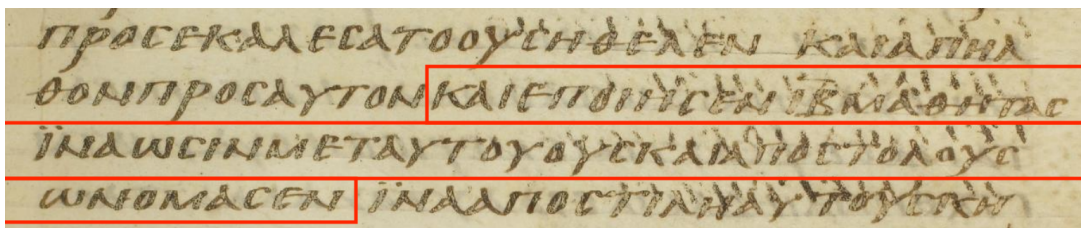 ΠΡΟCΕΚΑΛΕCΑΤΟΟΥCΗΘΕΛΕΝ ΚΑΙΑΠΗΛ
ΘΟΝΠΡΟCΑΥΤΟΝΚΑΙΕΠΟΙΗCΕΝ ΙΒ̅ ΜΑΘΗΤΑC
ΪΝΑΩCΙΝΜΕΤΑΥΤΟΥΟΥCΚΑΙΑΠΟCΤΟΛΟΥC
ΩΝΟΜΑCΕΝ ΪΝΑΑΠΟCΤΙΛΗΑΥΤΟΥCΚΗ